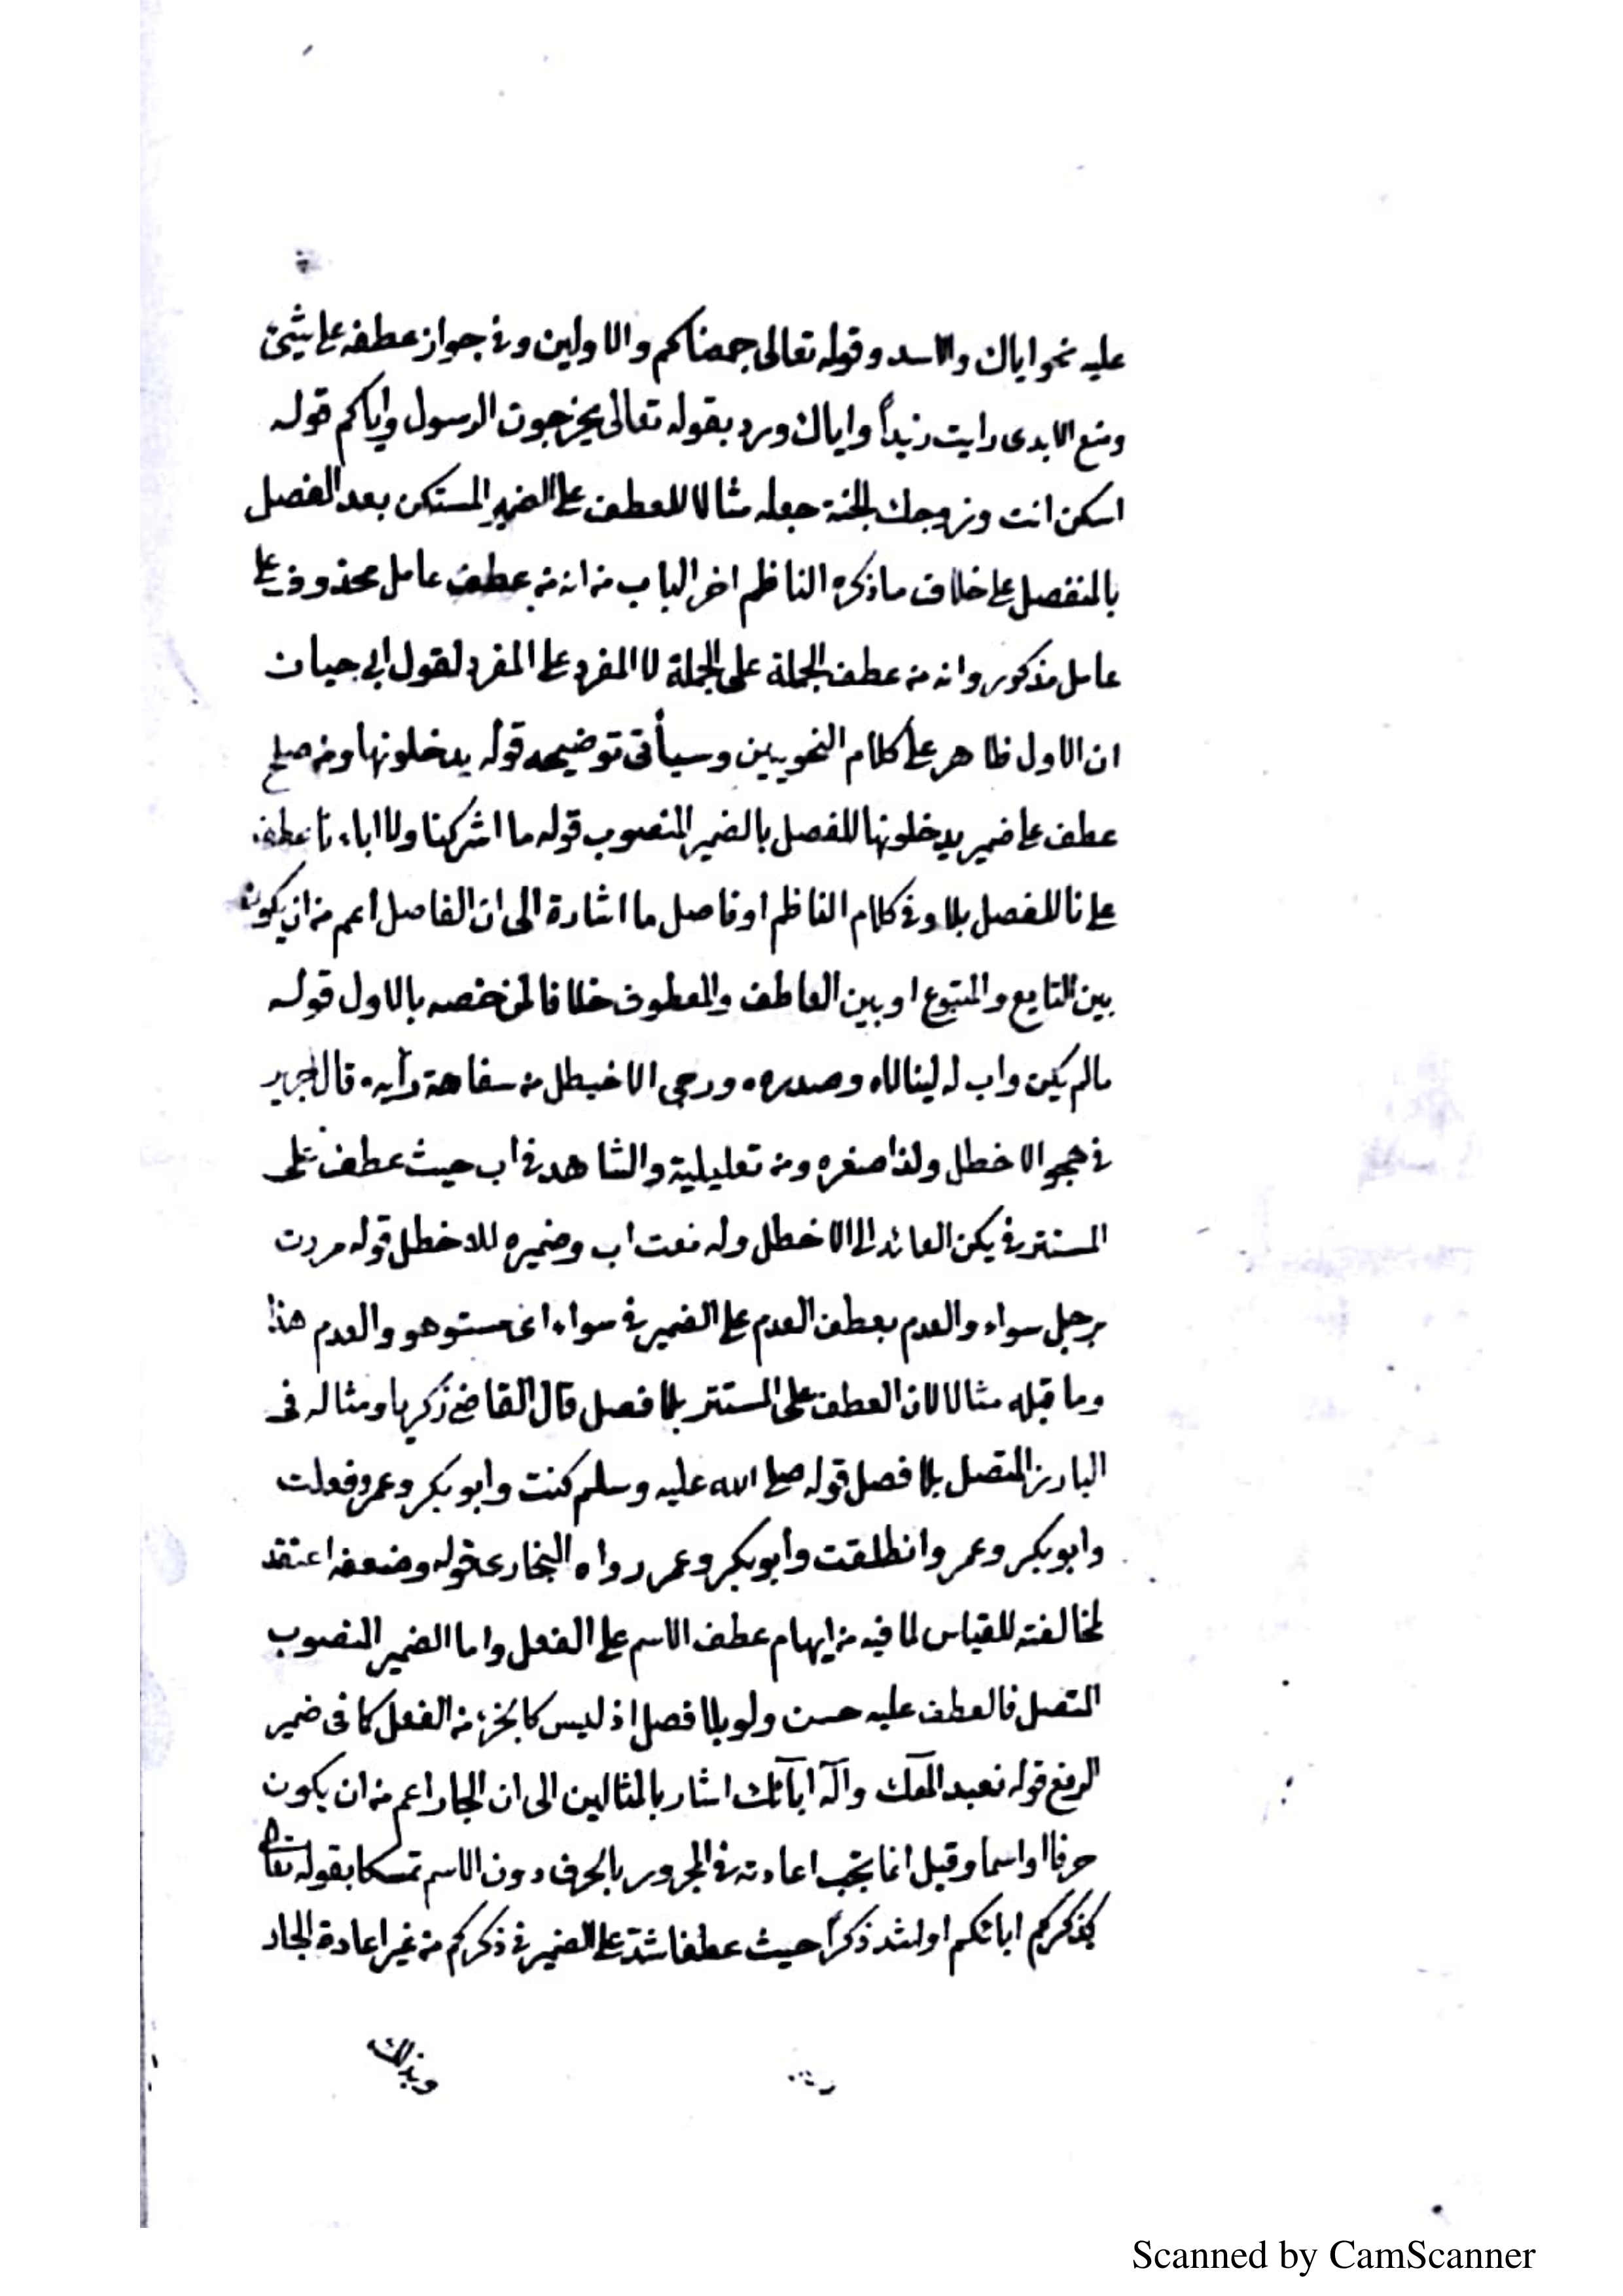 عليه نحو اياك والاسد وقوله تعالى جمعناكم والاولين وفي جواز عطفه على شيئ
ومنع الابدى رايت زيداً واياك ورد بقوله تعالى يخرجون الرسول واياكم قوله
اسكن انت وزوجك الجنة جعله مثالا للعطف على الضمير المستكن بعد الفصل
بالمنفصل على خلاف ما ذكره الناظم اخر الباب من انه من عطف عامل محذوف على
عامل مذكور وانه من عطف الجملة على الجملة لا المفرد على المفرد لقول ابي حيان
ان الاول ظاهر على كلام النحويين وسيأتى توضيحه قوله يدخلونها ومن صلح
عطف على ضمير يدخلونها للفصل بالضمير المنصوب قوله ما اشركنا ولا اباءنا عطف
على نا للفصل بلا وفي كلام الناظم او فاصل ما اشارة الى ان الفاصل اعم من ان يكون
بين التابع والمتبوع او بين العاطف والمعطوف خلافا لمن خصه بالاول قوله
مالم يكن واب له لينالاه وصدره ورجى الاخيطل من سفاهة رأيه قال جرير
في هجو الاخطل ولذا صغره ومن تعليلية والشاهد في اب حيث عطف على
المستتر في يكن العائد الى الاخطل وله نعت اب وضميره للاخطل قوله مررت
برجل سواء والعدم بعطف العدم على الضمير في سواء اى مستو هو والعدم هذا
وما قبله مثالا لان العطف على المستتر بلا فصل قال القاضي زكريا ومثاله فى
البارز المتصل بلا فصل قوله صلى الله عليه وسلم كنت وابو بكر وعمر وفعلت
وابو بكر وعمر وانطلقت وأبو بكر وعمر رواه البخارى قوله وضعفه اعتقد
لمخالفته للقياس لما فيه من ايهام عطف الاسم على الفعل واما الضمير المنصوب
المتصل فالعطف عليه حسن ولو بلا فصل اذ ليس كالجزء من الفعل كما فى ضمير
الرفع قوله نعبد الهك واله آبآئك اشار بالمثالين الى ان الجار اعم من ان يكون
حرفا او اسما وقيل انما يجب اعادته في المجرور بالحرف دون الاسم تمسكا بقوله تعالى
كذكركم اباءكم او اشد ذكراً حيث عطف اشد على الضمير في ذكركم من غير اعادة الجار